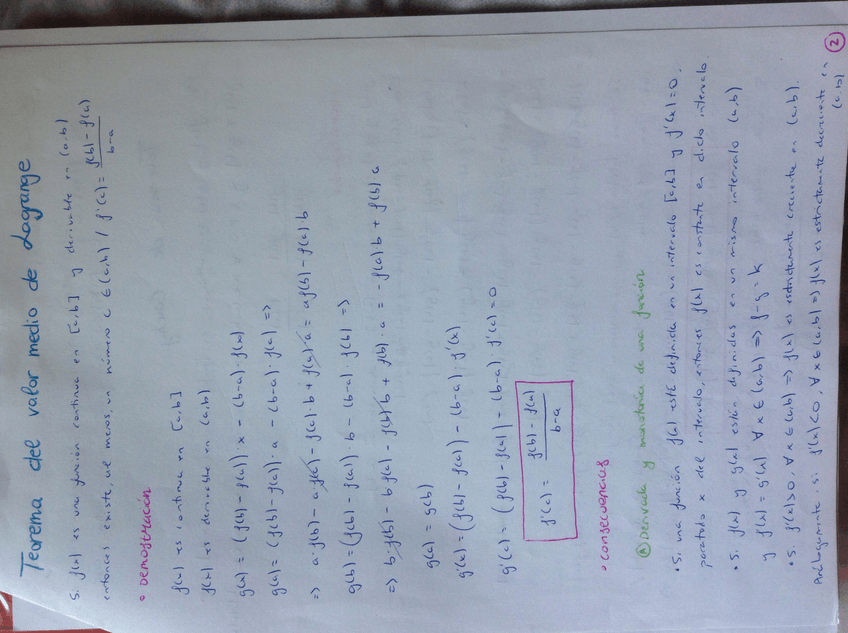 Teorema del valor medio de Lagrange
Si f(x) es una función continua en [a,b] y derivable en (a,b)
entonces existe al menos, un número c ∈ (a,b) / f'(c) = f(b) - f(a) / b-a
• DEMOSTRACIÓN
f(x) es continua en [a,b]
f(x) es derivable en (a,b)
g(x) = (f(b) - f(a)) · x - (b-a) · f(x)
g(a) = (f(b) - f(a)) · a - (b-a) · f(a) =>
=> a·f(b) - a f(a) - f(a)·b + f(a)·a = a f(b) - f(a)·b
g(b) = (f(b) - f(a)) · b - (b-a) · f(b) =>
=> b·f(b) - b f(a) - f(b)·b + f(b)·a = -f(a)·b + f(b)·a
g(a) = g(b)
g'(x) = (f(b) - f(a)) - (b-a) · f'(x)
g'(c) = (f(b) - f(a)) - (b-a) · f'(c) = 0
f'(c) = f(b) - f(a) / b-a
• CONSECUENCIAS
Ⓐ Derivada y monotonía de una función
• Si una función f(x) está definida en un intervalo [a,b] y f'(x) = 0.
para todo x del intervalo, entonces f(x) es constante en dicho intervalo.
• Si f(x) y g(x) están definidas en un mismo intervalo (a,b)
y f'(x) = g'(x) ∀ x ∈ (a,b) => f - g = k
• Si f'(x) > 0, ∀ x ∈ (a,b) => f(x) es estrictamente creciente en (a,b).
Análogamente si f'(x) < 0, ∀ x ∈ (a,b) => f(x) es estrictamente decreciente en
(a,b)
②